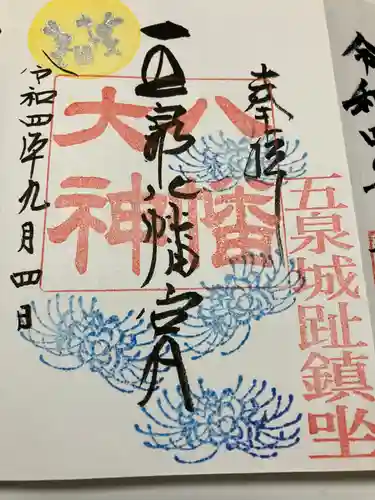 奉拝
五泉八幡宮
令和四年九月四日
八幡
大神
五泉城趾鎮坐
令和四